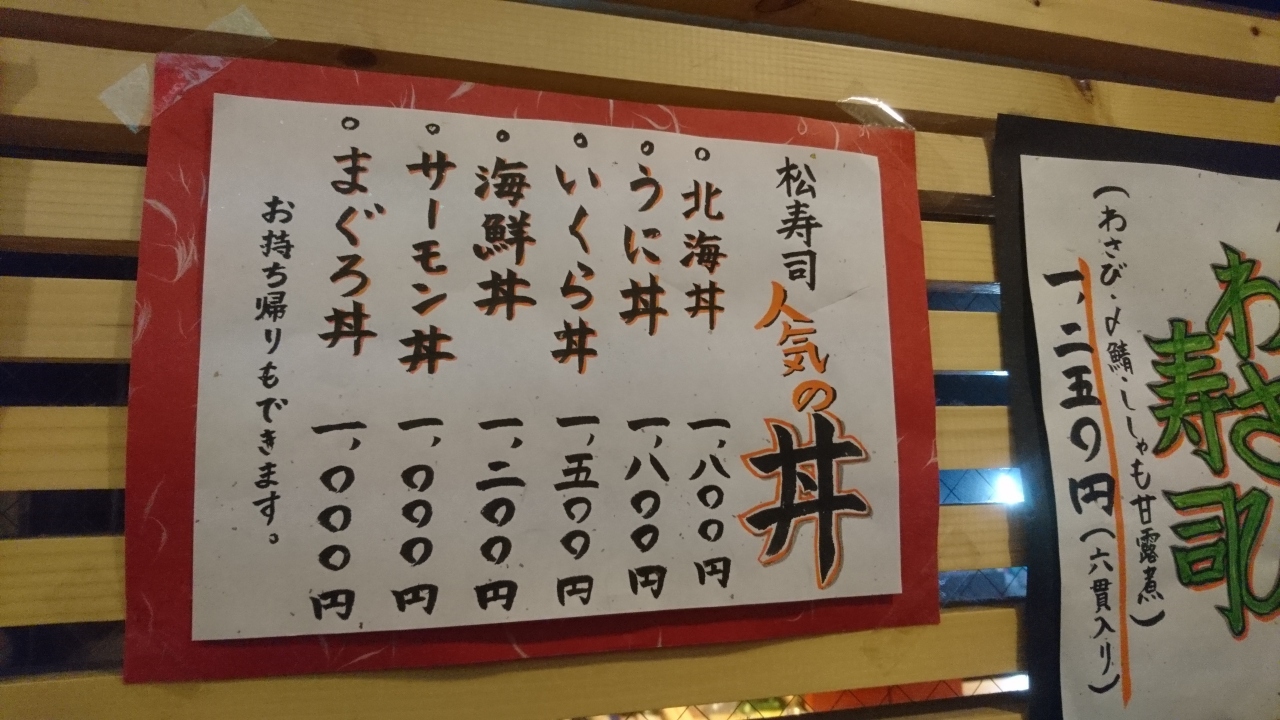 わさ
寿司
（わさび・〆鯖・ししゃも甘露煮）
一,二五〇円（六貫入り）
松寿司人気の丼
○北海丼 一,八〇〇円
○うに丼 一,八〇〇円
○いくら丼 一,五〇〇円
○海鮮丼 一,二〇〇円
○サーモン丼 一,〇〇〇円
○まぐろ丼 一,〇〇〇円
お持ち帰りもできます。